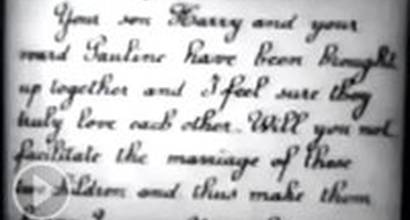 Your son Harry and your
ward Pauline have been brought
up together and I feel sure they
truly love each other. Will you not
facilitate the marriage of these
two children and thus make them